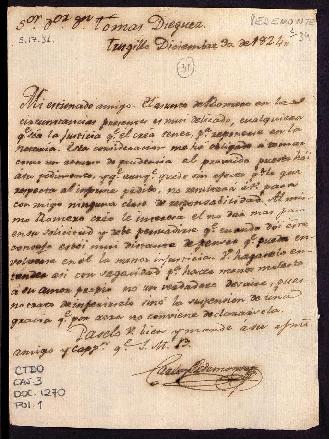 Sor. Dor. Dn. Tomas Dieguez
PEDEMONTE
S.17.31.
Trugillo Diciembre 30 de 1824
2/39
31
Mi estimado amigo. El asunto de Romero en las
circunstancias presentes es mui delicado, cualquiera
qe. sea la justicia qe. el crea tener pa. reponerse en la
Notaria. Esta consideracion me há obligado á tomar
como un termino de prudencia el proveido puesto
á su pedimento, y qe. aunqe. quede sin efecto pr. lo qe.
respecta al informe pedido, no resultará á V. para
conmigo ninguna clase de responsabilidad. Al mis-
mo Romero creo le interesa el no dar mas paso
en su solicitud y debe persuadirse qe. cuando doi este
consejo estoi mui distante de pensar qe. pueda en-
volverse en él la menor injusticia. V. hagaselo en-
tender asi con sagacidad pa. hacer menos molesto
á su amor propio no un verdadero desaire, pues
no trata de inferirselo sinó la suspension de una
gracia qe. por aora no conviene declararsela.
Paselo V. bien y mande a su afmo.
amigo y Cappn. q. S. M. B.
Carlos Pedemonte
CTDO
CAJ. 3
DOC. 1270
FOL. 1